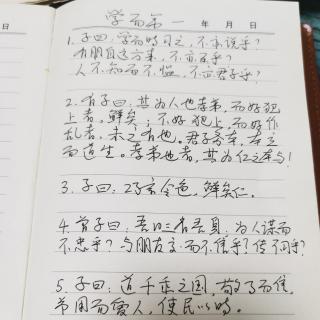 学而第一 年 月 日
1. 子曰：学而时习之，不亦说乎？
有朋自远方来，不亦乐乎？
人不知而不愠，不亦君子乎？
2. 有子曰：其为人也孝弟，而好犯
上者，鲜矣；不好犯上，而好作
乱者，未之有也。君子务本，本立
而道生。孝弟也者，其为仁之本与！
3. 子曰：巧言令色，鲜矣仁。
4. 曾子曰：吾日三省吾身：为人谋而
不忠乎？与朋友交而不信乎？传不习乎？
5. 子曰：道千乘之国，敬事而信，
节用而爱人，使民以时。